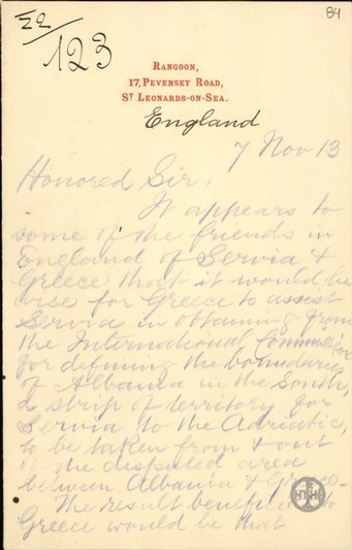 84
22/123
RANGOON,
17, PEVENSEY ROAD,
ST LEONARDS-ON-SEA.
England
7 Nov 13
Honored Sir,
It appears to
some of the friends in
England of Servia &
Greece that it would be
wise for Greece to assist
Servia in obtaining from
the International Commission
for defining the boundaries
of Albania in the South,
a strip of territory for
Servia to the Adriatic,
to be taken from & out
of the disputed area
between Albania & Greece.
The result beneficial to
Greece would be that